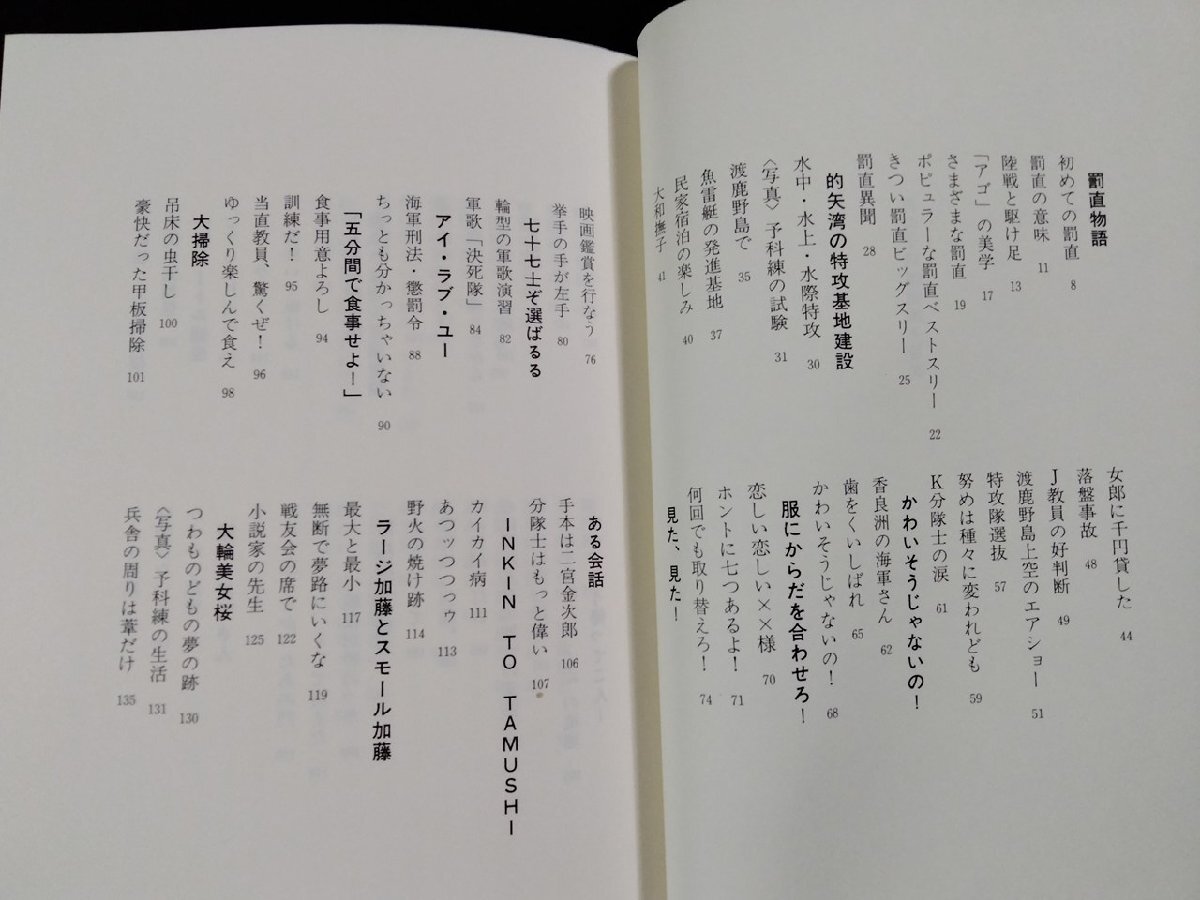 罰直物語
初めての罰直 8
罰直の意味 11
陸戦と駆け足 13
「アゴ」の美学 17
さまざまな罰直 19
ポピュラーな罰直ベストスリー 22
きつい罰直ビッグスリー 25
罰直異聞 28
的矢湾の特攻基地建設
水中・水上・水際特攻 30
〈写真〉予科練の試験 31
渡鹿野島で 35
魚雷艇の発進基地 37
民家宿泊の楽しみ 40
大和撫子 41
女郎に千円貸した 44
落盤事故 48
J教員の好判断 49
渡鹿野島上空のエアショー 51
特攻隊選抜 57
努めは種々に変われども 59
K分隊士の涙 61
かわいそうじゃないの!
香良洲の海軍さん 62
歯をくいしばれ 65
かわいそうじゃないの! 68
服にからだを合わせろ!
恋しい恋しい××様 70
ホントに七つあるよ! 71
何回でも取り替えろ! 74
見た、見た!
映画鑑賞を行なう 76
挙手の手が左手 80
七十七士ぞ選ばるる
輪型の軍歌演習 82
軍歌「決死隊」 84
アイ・ラブ・ユー
海軍刑法・懲罰令 88
ちっとも分かっちゃいない 90
「五分間で食事せよー」
食事用意よろし 94
訓練だ! 95
当直教員、驚くぜ! 96
ゆっくり楽しんで食え 98
大掃除
吊床の虫干し 100
豪快だった甲板掃除 101
ある会話
手本は二宮金次郎 106
分隊士はもっと偉い 107
INKIN TO TAMUSHI
カイカイ病 111
あつッつつつゥ 113
野火の焼け跡 114
ラージ加藤とスモール加藤
最大と最小 117
無断で夢路にいくな 119
戦友会の席で 122
小説家の先生 125
大輪美女桜
つわものどもの夢の跡 130
〈写真〉予科練の生活 131
兵舎の周りは葦だけ 135